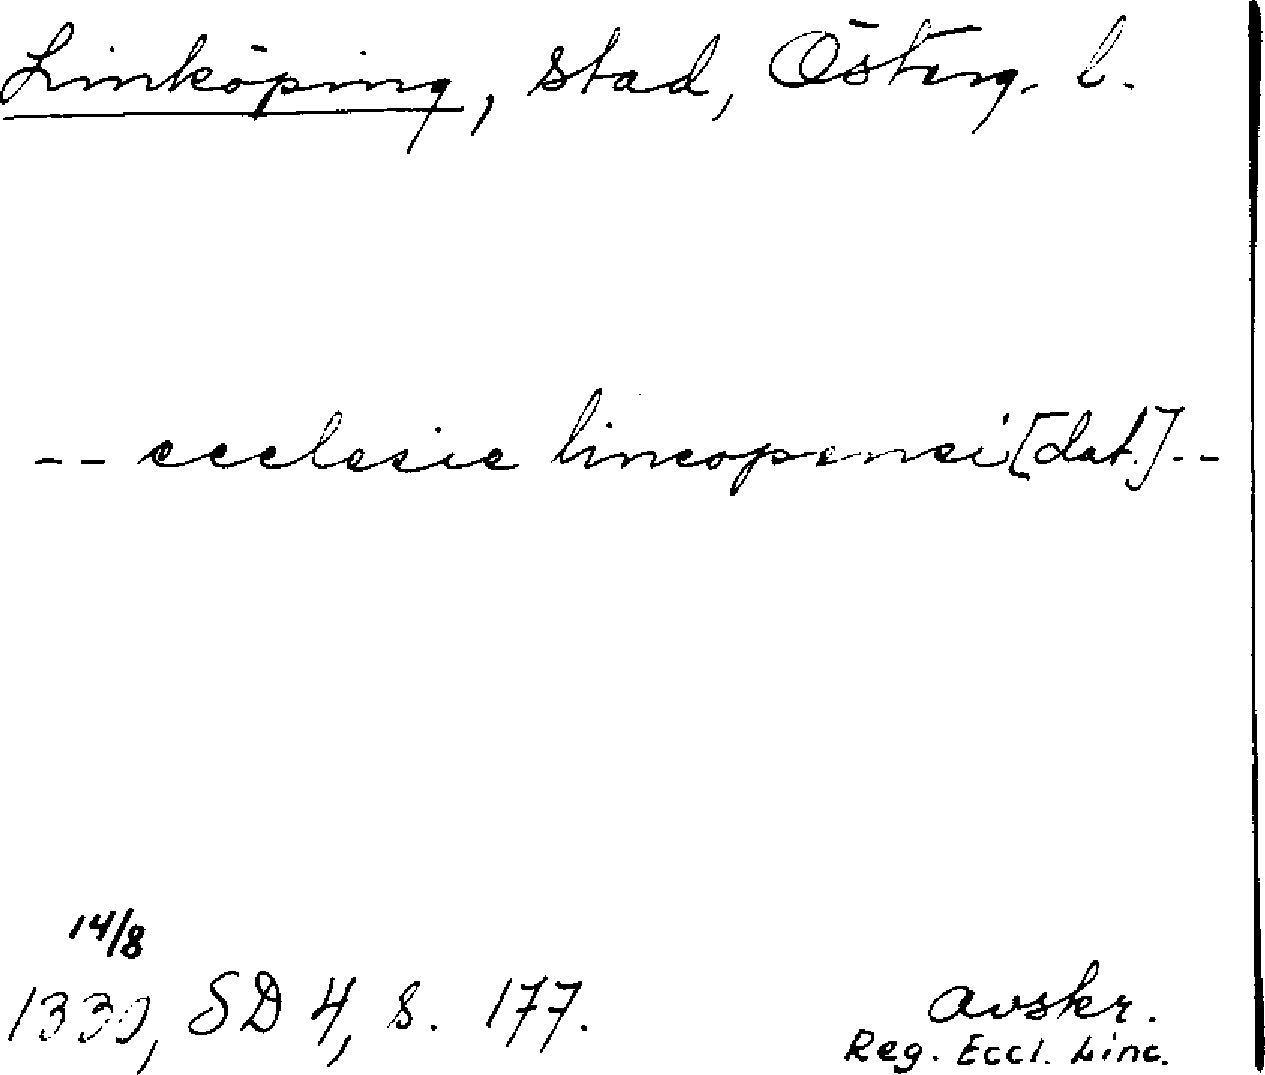 Linköping, stad, Österg. l.
-- ecclesie lincopensi [dat.] --
14/8
1330, SD 4, s. 177.
avskr.
Reg. Eccl. Linc.